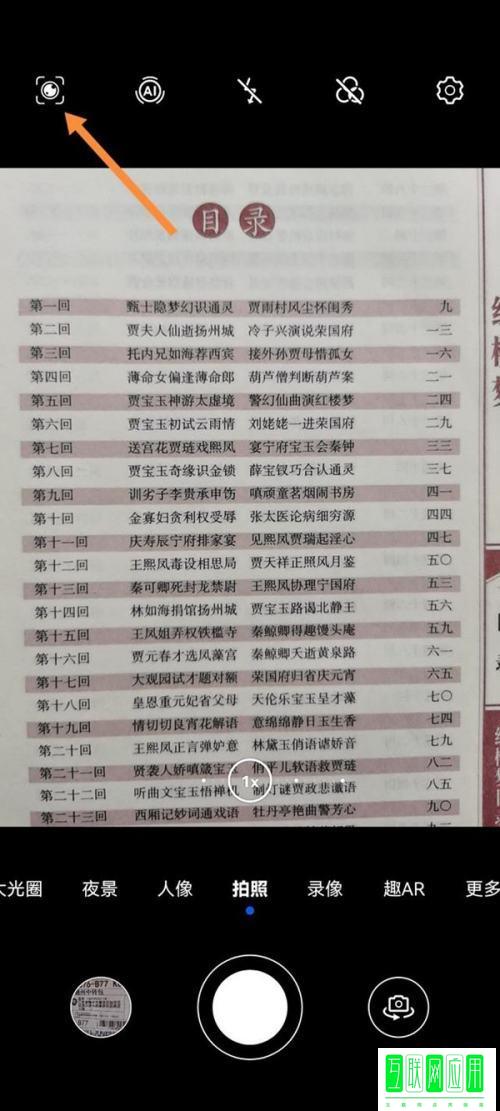 AI
目录
第一回 甄士隐梦幻识通灵 贾雨村风尘怀闺秀 九
第二回 贾夫人仙逝扬州城 冷子兴演说荣国府 一三
第三回 托内兄如海荐西宾 接外孙贾母惜孤女 一六
第四回 薄命女偏逢薄命郎 葫芦僧判断葫芦案 二一
第五回 贾宝玉神游太虚境 警幻仙曲演红楼梦 二四
第六回 贾宝玉初试云雨情 刘姥姥一进荣国府 二九
第七回 送宫花贾琏戏熙凤 宴宁府宝玉会秦钟 三三
第八回 贾宝玉奇缘识金锁 薛宝钗巧合认通灵 三七
第九回 训劣子李贵承申饬 嗔顽童茗烟闹书房 四一
第十回 金寡妇贪利权受辱 张太医论病细穷源 四四
第十一回 庆寿辰宁府排家宴 见熙凤贾瑞起淫心 四七
第十二回 王熙凤毒设相思局 贾天祥正照风月鉴 五〇
第十三回 秦可卿死封龙禁尉 王熙凤协理宁国府 五三
第十四回 林如海捐馆扬州城 贾宝玉路谒北静王 五六
第十五回 王凤姐弄权铁槛寺 秦鲸卿得趣馒头庵 五九
第十六回 贾元春才选凤藻宫 秦鲸卿夭逝黄泉路 六一
第十七回 大观园试才题对额 荣国府归省庆元宵 六五
第十八回 皇恩重元妃省父母 天伦乐宝玉呈才藻 七〇
第十九回 情切切良宵花解语 意绵绵静日玉生香 七四
第二十回 王熙凤正言弹妒意 林黛玉俏语谑娇音 七九
第二十一回 贤袭人娇嗔箴宝 俏平儿软语救贾琏 八二
1x
第二十二回 听曲文宝玉悟禅机 制灯谜贾政悲谶语 八五
第二十三回 西厢记妙词通戏语 牡丹亭艳曲警芳心 九〇
大光圈 夜景 人像 拍照 录像 趣AR 更多
互联网应用